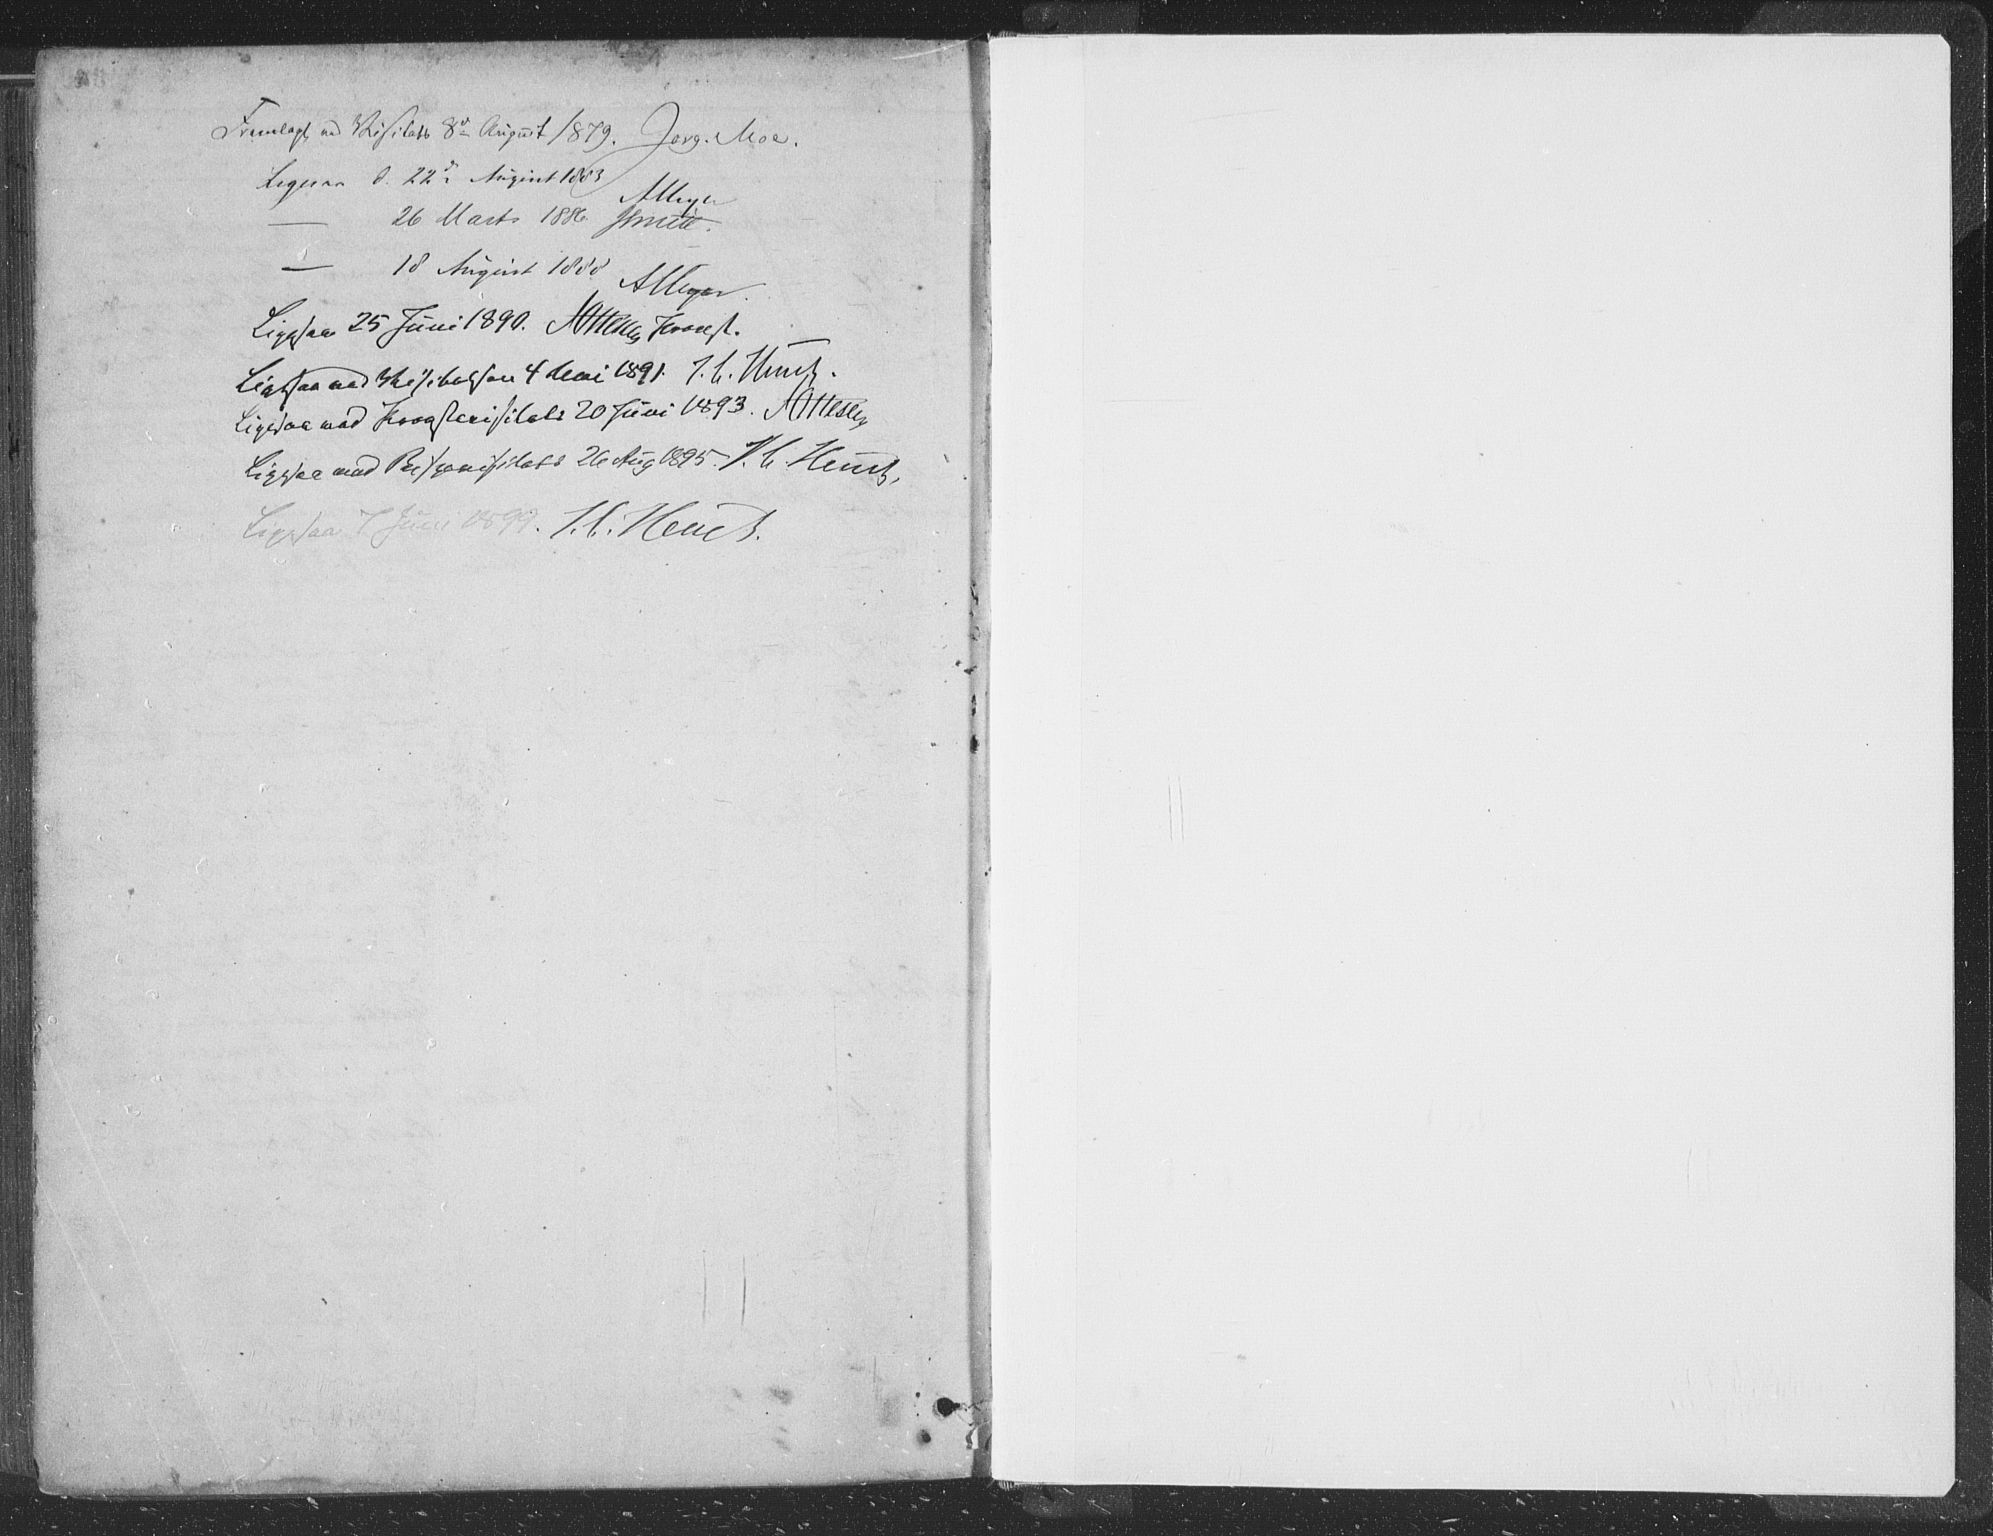 Fremlagt ved Visitats 8de August 1879. Jørg. Moe.
Ligesaa d. 22de August 1883 AMeyer
— 26 Marts 1886 Smitt.
— 18 August 1888 AMeyer.
Ligesaa 25 Juni 1890. Provst.
Ligesaa ved Visitatsen 4 Mai 1891. J. C. Heuch.
Ligesaa ved Provstevisitats 20 Juni 1893.
Ligesaa ved Bispevisitats 26 Aug 1895. J. C. Heuch.
Ligesaa 7 Juni 1899. J. C. Heuch.